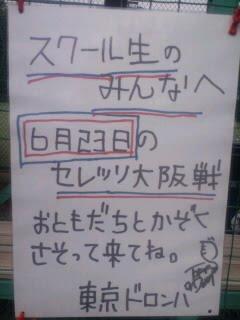 スクール生の
みんなへ
6月23日の
セレッソ大阪戦
おともだちとかぞく
さそって来てね。
東京ドロンパ